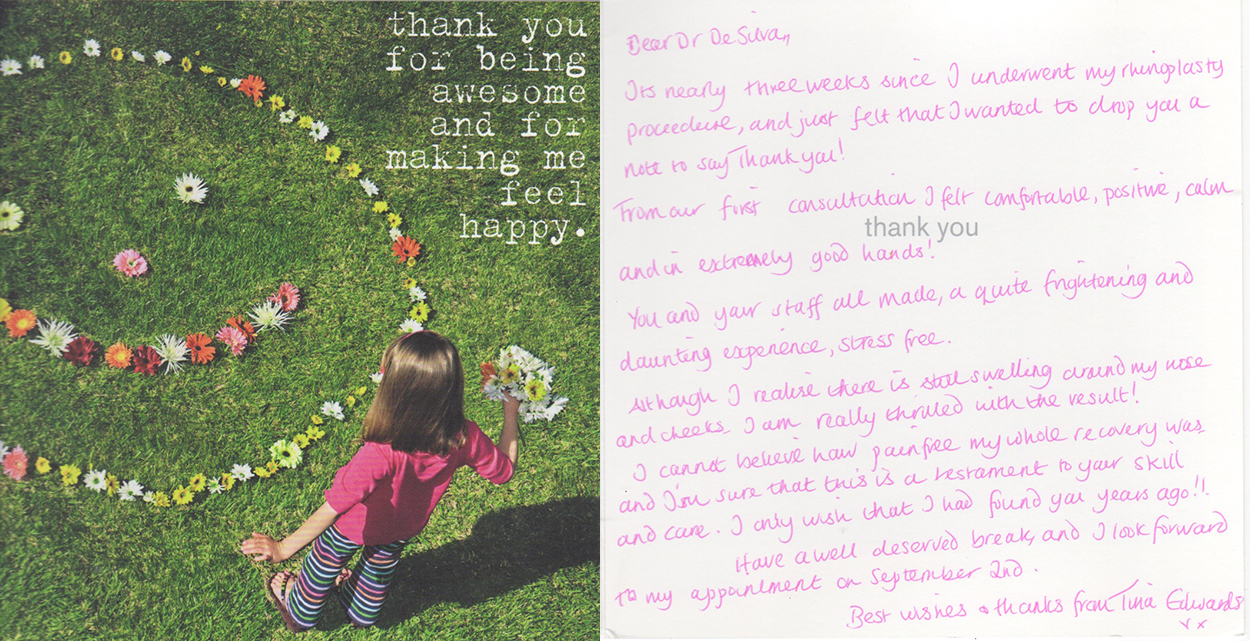 thank you
for being
awesome
and for
making me
feel
happy.
Dear Dr De Silva,
Its nearly three weeks since I underwent my rhinoplasty
proceedure, and just felt that I wanted to drop you a
note to say Thank you!
From our first consultation I felt comfortable, positive, calm
thank you
and in extremely good hands!
You and your staff all made, a quite frightening and
daunting experience, stress free.
Although I realise there is still swelling around my nose
and cheeks I am really thrilled with the result!
I cannot believe how painfree my whole recovery was
and I'm sure that this is a testament to your skill
and care. I only wish that I had found you years ago!!
Have a well deserved break, and I look forward
to my appointment on September 2nd.
Best wishes & thanks from Tina Edwards
x x